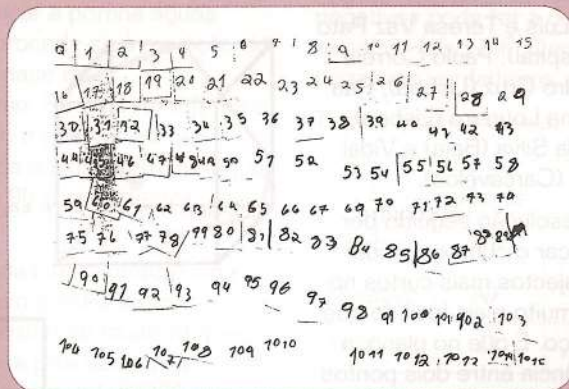 0 1 2 3 4 5 6 7 8 9 10 11 12 13 14 15
16 17 18 19 20 21 22 23 24 25 26 27 28 29
30 31 32 33 34 35 36 37 38 39 40 41 42 43
44 45 46 47 48 49 50 51 52 53 54 55 56 57 58
59 60 61 62 63 64 65 66 67 69 70 71 72 73 74
75 76 77 78 79 80 81 82 83 84 85 86 87 88 89
90 91 92 93 94 95 96 97 98 99 100 101 102 103
104 105 106 107 108 109 1010 1011 1012 1013 1014 1015